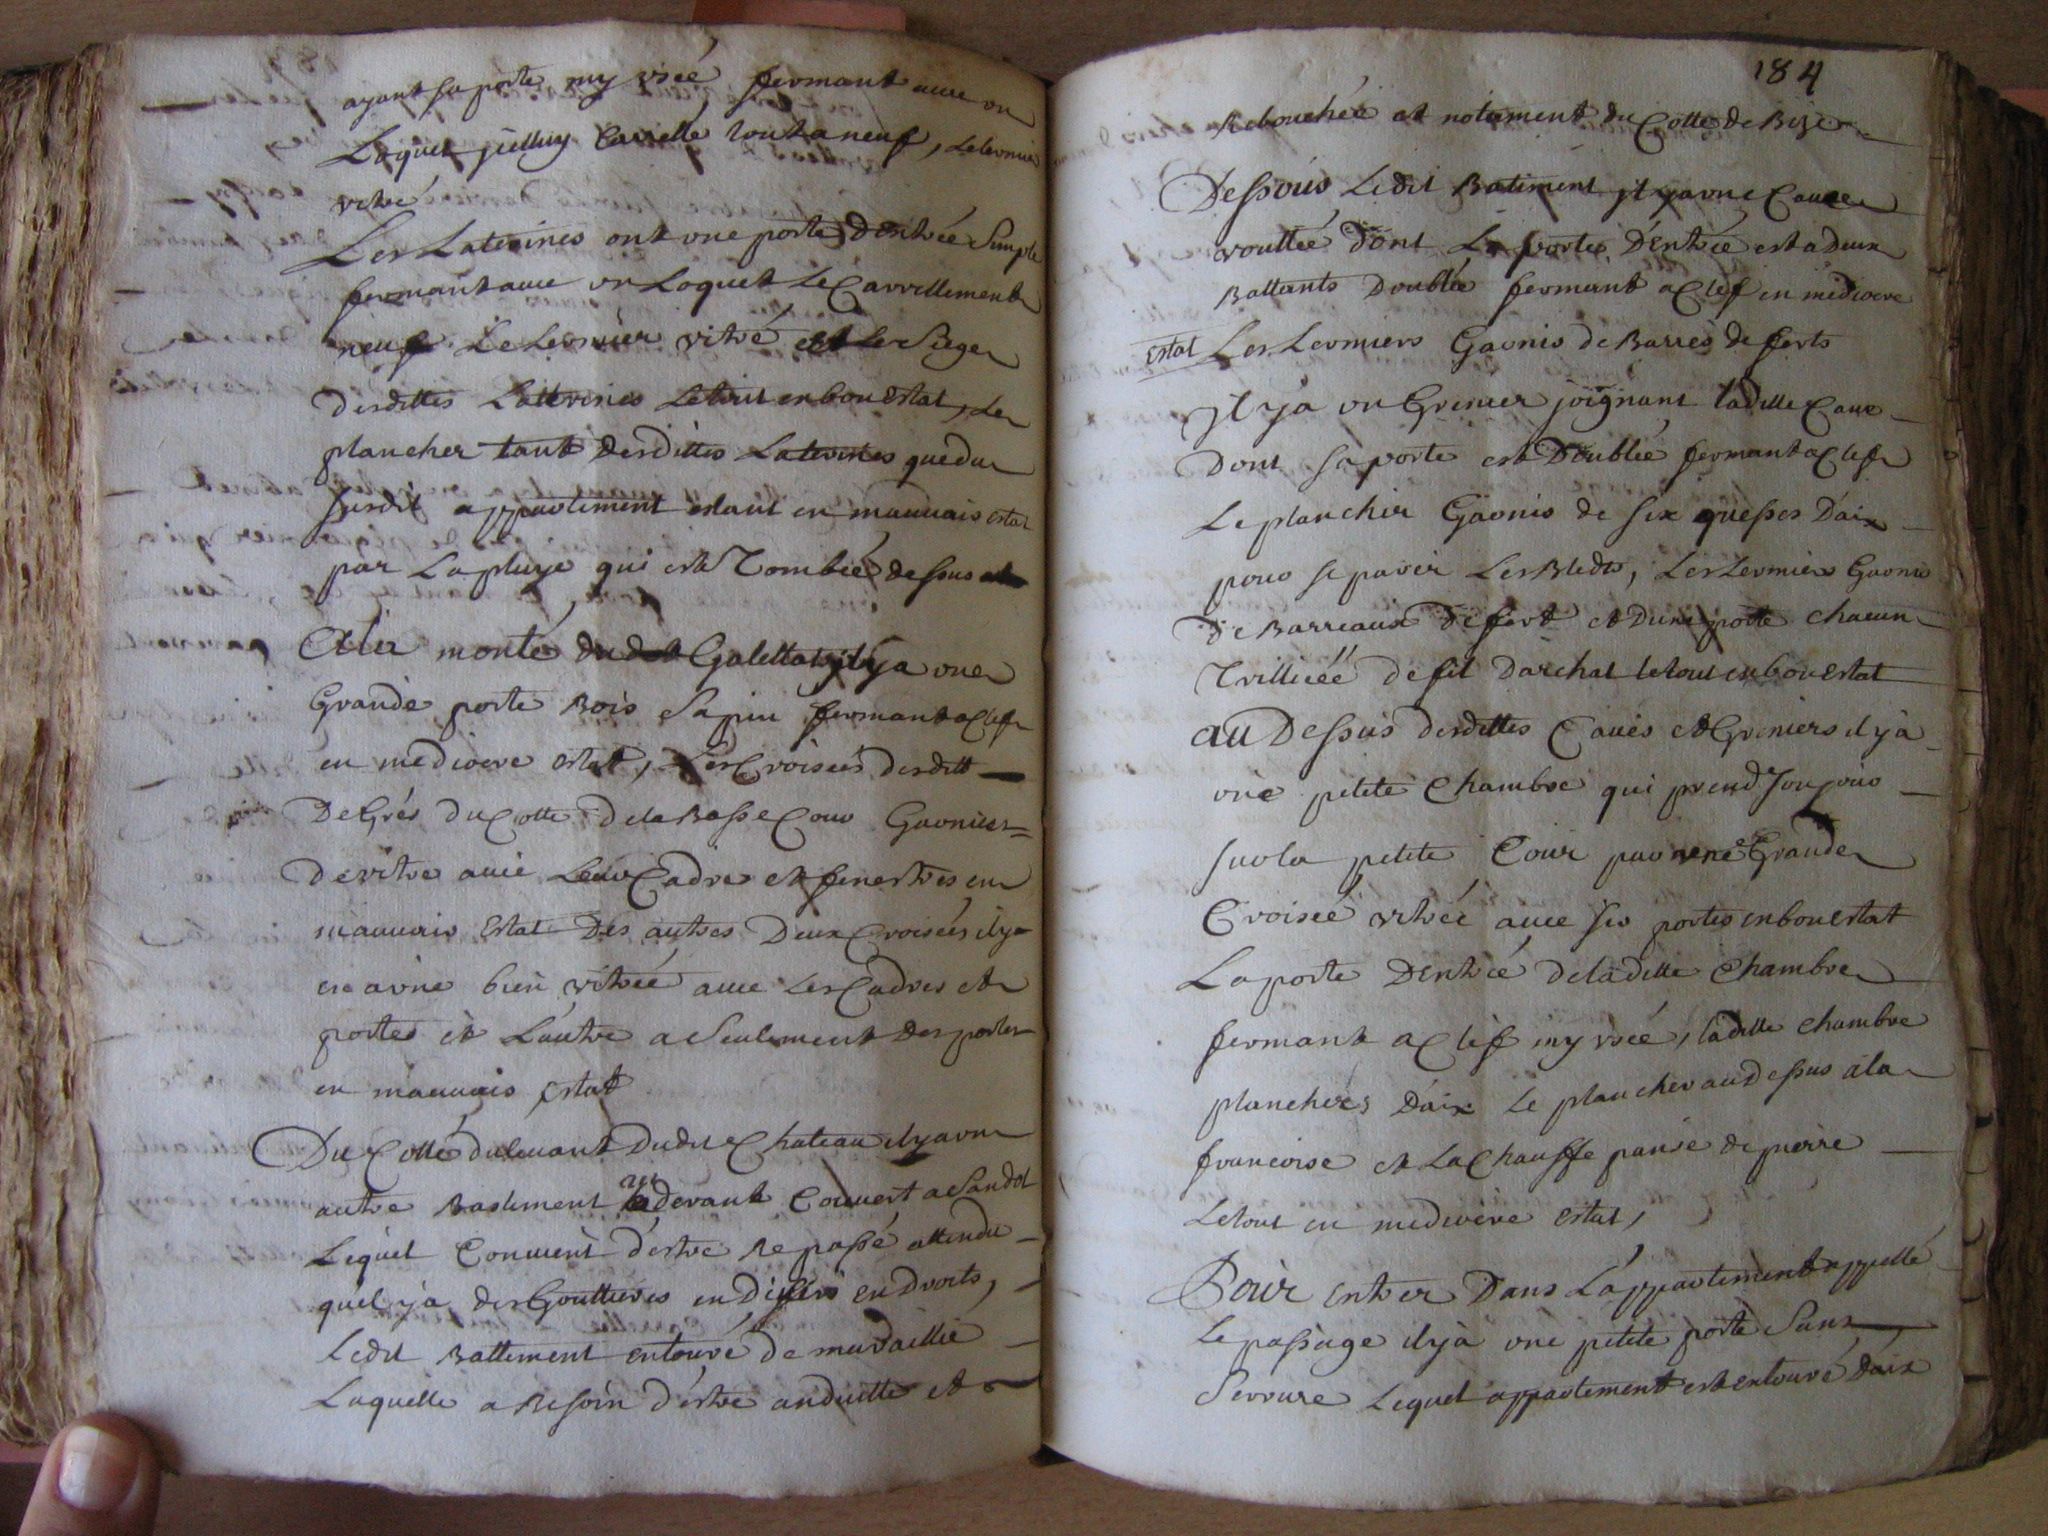 ayant sa porte my usée fermant avec un
Loquet icelluy Carrellé tout a neuf, le lermier
vitré
Les Laterines ont une porte d'entrée Simple
fermant avec un Loquet le Carrellement
neuf Le Lermier vitré et le Siege
desdittes Latterines le tout en bon estat, le
plancher tant desdittes Laterines que du
susdit appartement estant en mauuais estat
par La pluye qui est Tombée dessus
A la montée dudit Galettas il y a une
Grande porte Bois Sapin fermant a Clef
en mediocre estat, Les Croisées desditt
Degrés du Cotté de la Basse Cour Garnies
De vitre avec Leur Cadre et fenestres en
mauuais Estat Des autres Deux Croisées il y
en a une bien vitrée auec Les Cadres et
portes et L'autre a Seulement des portes
en mauuais estat
Du Cotté du leuant Dudit Chateau il y a un
autre Bastiment cy deuant Couuert a Sandol
Lequel Conuient d'estre Repassé attendu
qu'il y a des Gouttieres en Diuers endroits,
Ledit Battiment entouré de muraillie
Laquelle a Besoin d'estre anduitte et
184
Rebouchée et notament du Cotté de Bize
Dessous Ledit Batiment il y a une Caue
vouttée dont La porte D'Entrée est a Deux
Battants Doublée fermant a Clef en mediocre
estat Les Lermiers Garnis de Barres de ferts
Il y a un Grenier joignant laditte Caue
Dont sa porte est Doublée fermant a Clef
Le plancher Garnis de six quesses D'aix
pour separer Les Bleds, Les Lermiers Garnis
de Barreaux de fert et d'une porte chacun
Trilliéé de fil d'archal le tout en bon Estat
au Dessus desdittes Caues et Greniers il y a
une petite Chambre qui prend son jour
sur la petite Cour par une Grande
Croisée vitrée auec ses portes en bon Estat
La porte D'entrée de laditte Chambre
fermant a Clef my usée, laditte chambre
planchée D'aix Le plancher au Dessus a la
francoise et La Chauffe panse de pierre
Le tout en mediocre estat,
Pour entrer Dans L'appartement appellé
Le passage il y a une petite porte Sans
Serrure Lequel appartement est entouré d'aix